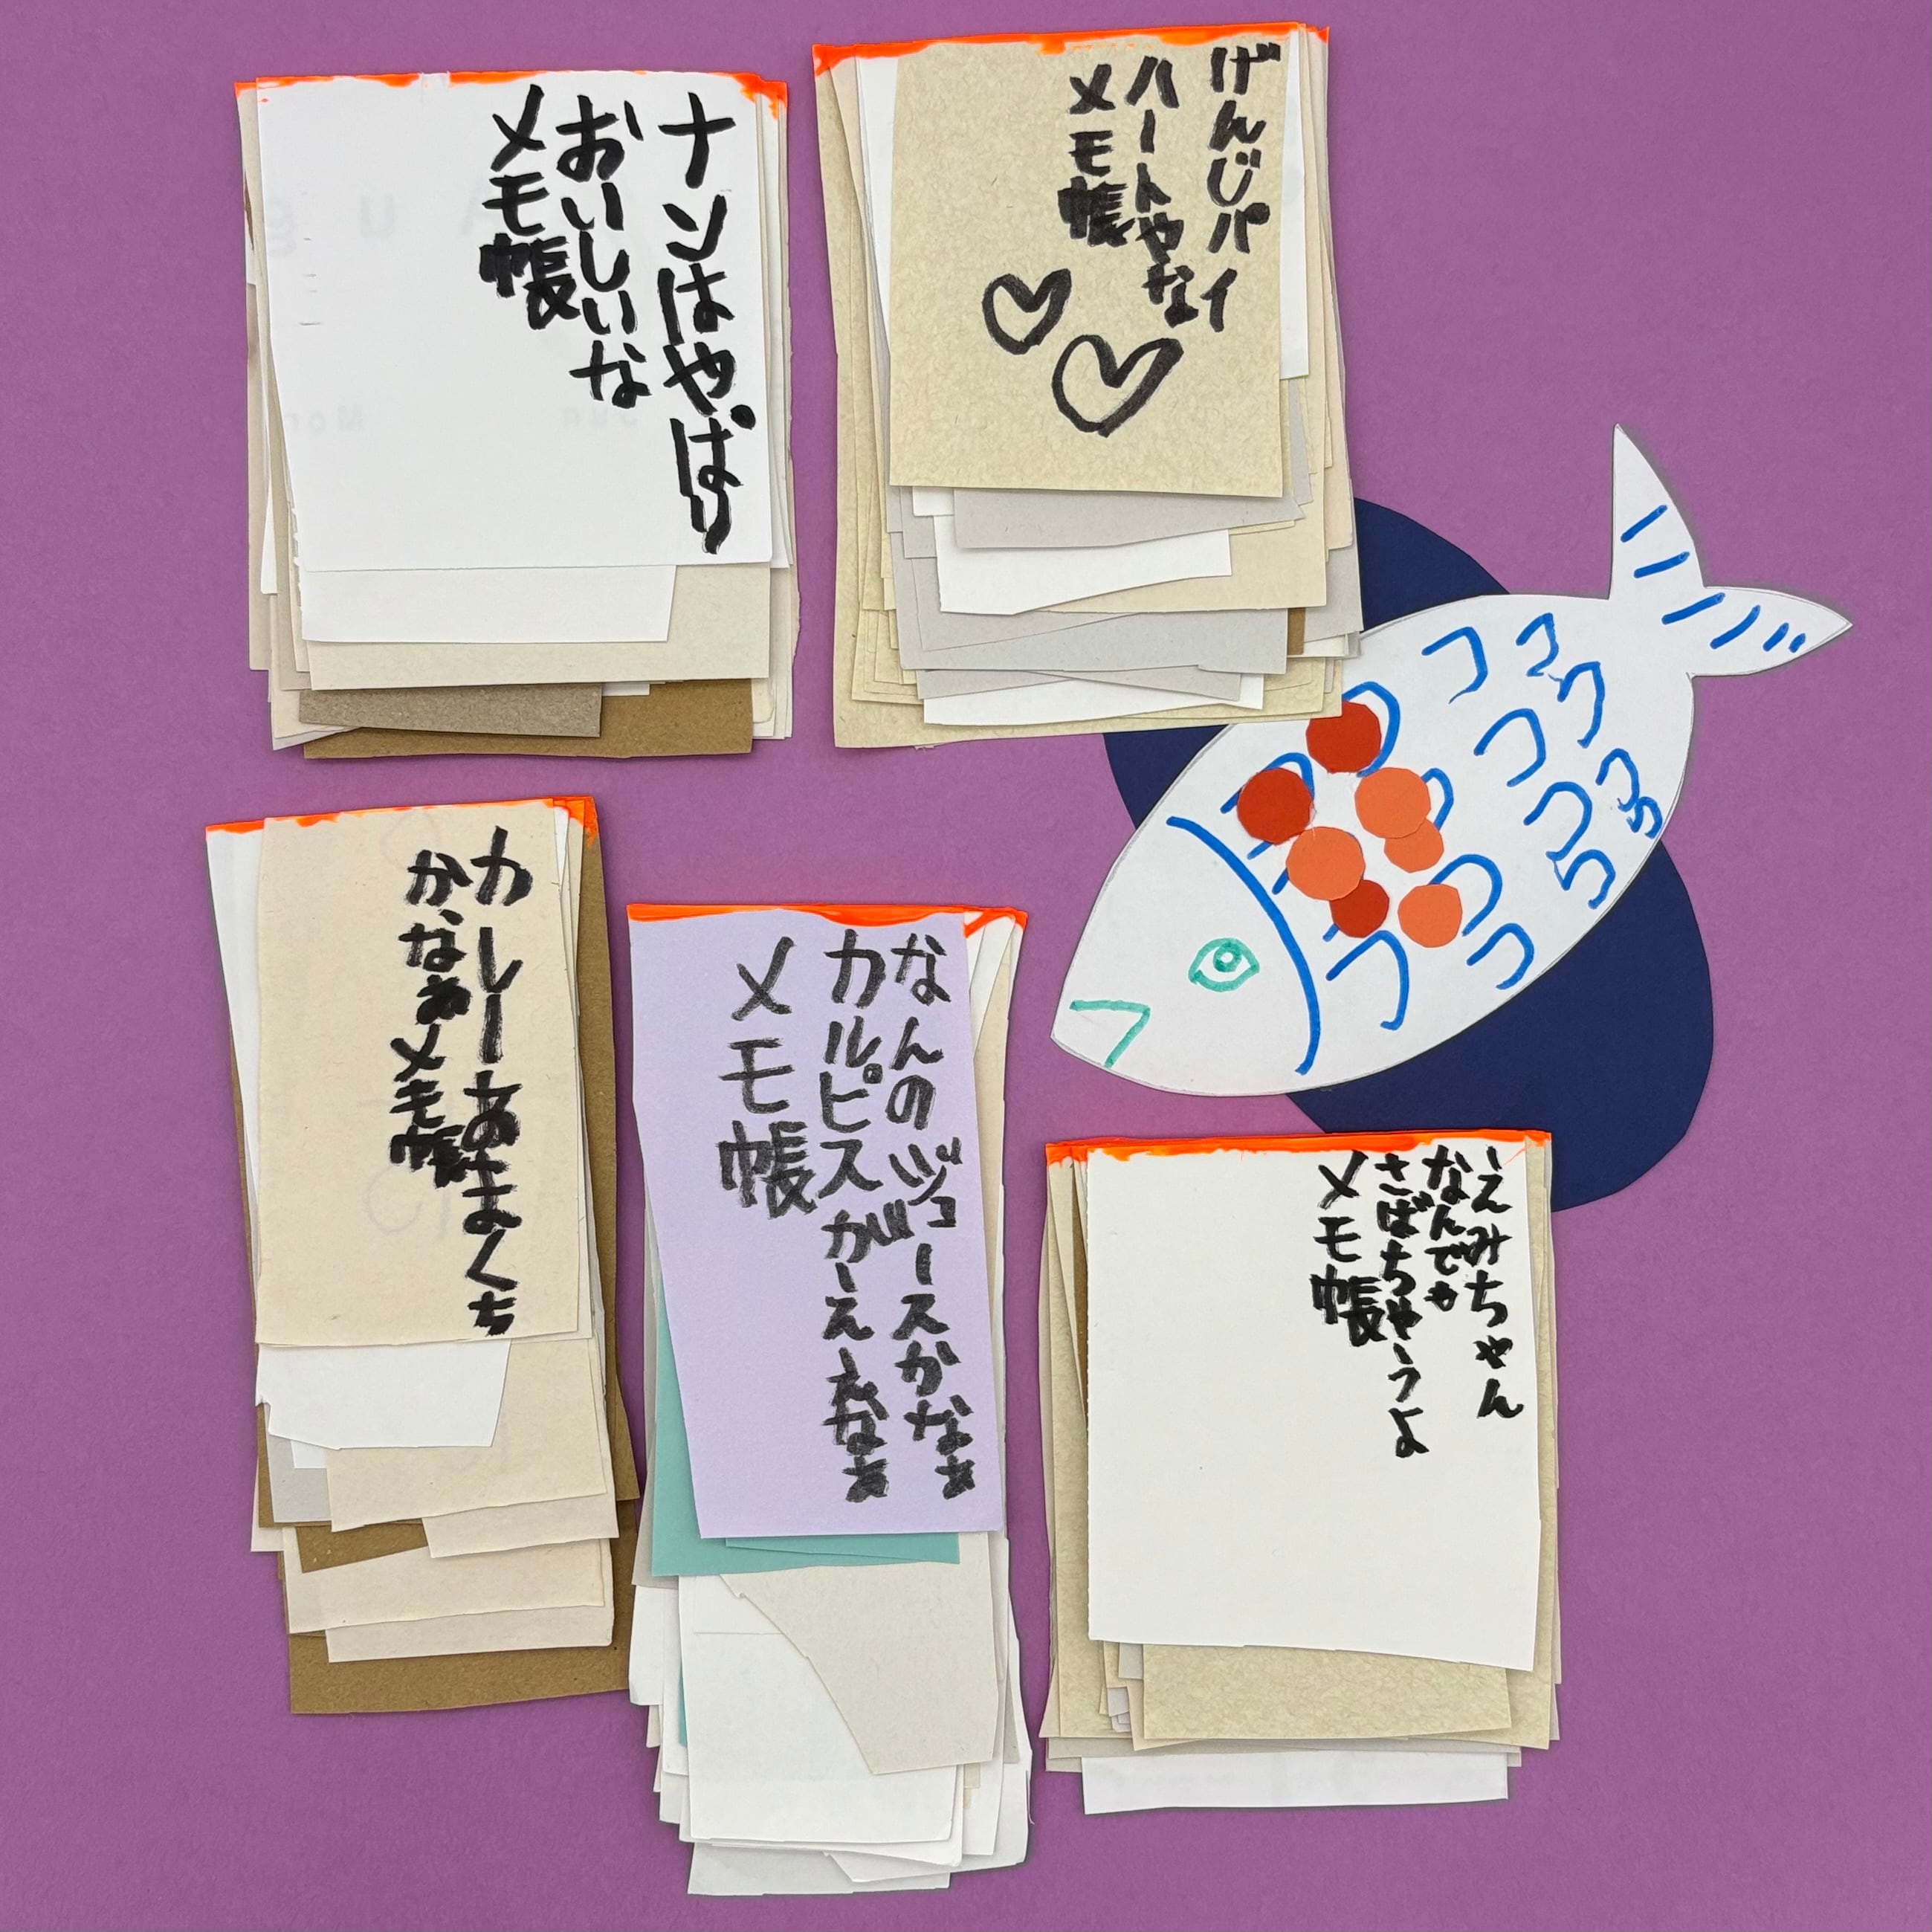 ナンはやぱり
おいしいな
メモ帳
げんじパイ
ハートやな
メモ帳
カレーあまくち
かなぁメモ帳
なんのジュースかなぁ
カルピスがええなぁ
メモ帳
えみちゃん
なんでや
さばちゃうよ
メモ帳